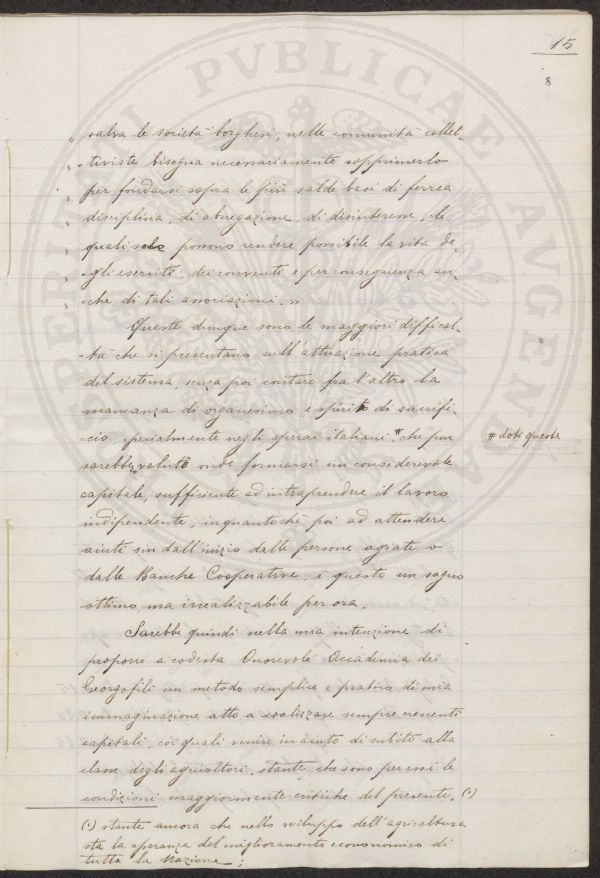 15
8
" salva le società borghesi, nelle comunità collet-
" tiviste bisogna necessariamente sopprimerlo
" per fondarsi sopra le più salde basi di ferrea
" disciplina, di abnegazione, di disinteresse, le
" quali sole possono rendere possibile la vita de-
" gli eserciti, dei conventi e per conseguenza an-
" che di tali associazioni. "
Queste dunque sono le maggiori difficol-
-tà che si presentano sull'attuazione pratica
del sistema, senza poi contare fra l'altro la
mancanza di organesimo e spirito di sacrifi-
cio, specialmente negli operai italiani # che pur
# doti queste
sarebbe volute onde formarsi un considerevole
capitale, sufficiente ad intraprendere il lavoro
indipendente, inquantoché poi ad attendere
aiuti sin dall'inizio dalle persone agiate o
dalle Banche Cooperative, è questo un sogno
ottimo, ma irrealizzabile per ora.
Sarebbe quindi nella mia intenzione di
proporre a codesta Onorevole Accademia dei
Georgofili un metodo semplice e pratico di mia
immaginazione atto a coalizzare sempre crescenti
capitali, coi quali venire in aiuto di subito alla
classe degli agricoltori, stante che sono per essi le
condizioni maggiormente critiche del presente. (1)
(1) stante ancora che nello sviluppo dell'agricoltura
sta la speranza del miglioramento economico di
tutta la Nazione;
PROSPERITATI PVBLICAE AVGENDAE